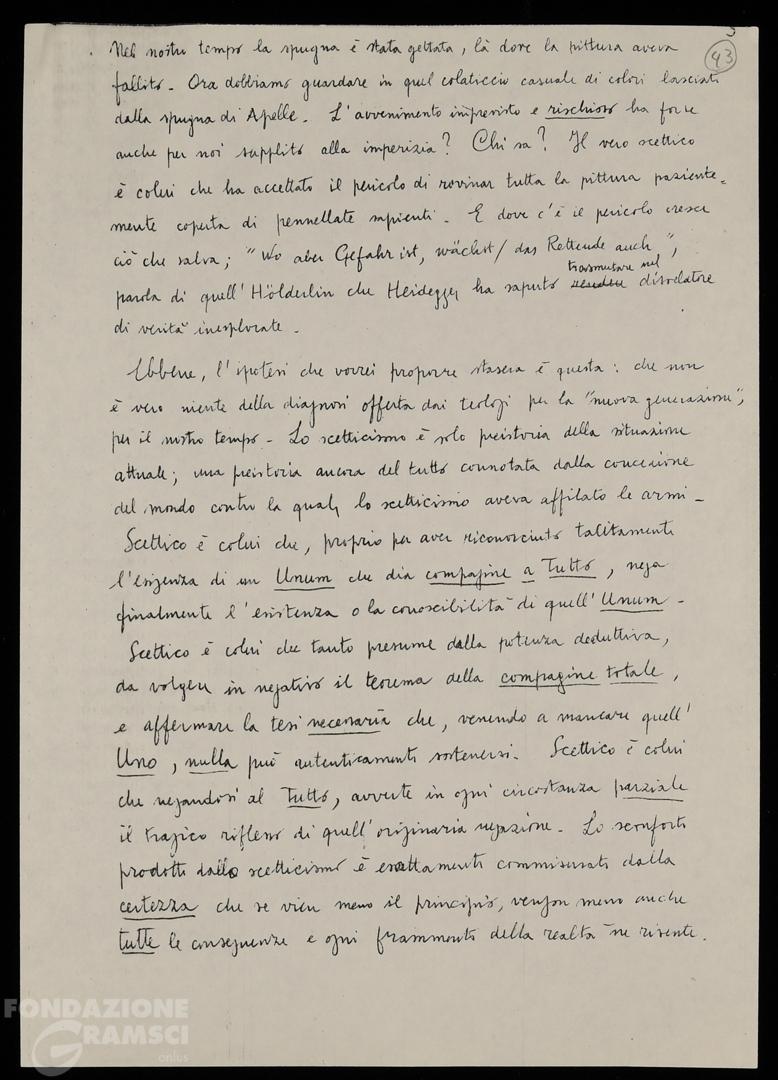 3
43
Nel nostro tempo la spugna è stata gettata, là dove la pittura aveva
fallito. Ora dobbiamo guardare in quel colaticcio casuale di colori lasciati
dalla spugna di Apelle. L'avvenimento imprevisto e rischioso ha forse
anche per noi supplito alla imperizia? Chi sa? Il vero scettico
è colui che ha accettato il pericolo di rovinar tutta la pittura paziente-
mente coperta di pennellate sapienti. E dove c'è il pericolo cresce
ciò che salva; "Wo aber Gefahr ist, wächst / das Rettende auch",
trasmutare nel
parola di quell'Hölderlin che Heidegger ha saputo rendere disvelatore
di verità inesplorate.
Ebbene, l'ipotesi che vorrei proporre stasera è questa: che non
è vero niente della diagnosi offerta dai teologi per la "nuova generazione",
per il nostro tempo. Lo scetticismo è solo preistoria della situazione
attuale; una preistoria ancora del tutto connotata dalla concezione
del mondo contro la quale lo scetticismo aveva affilato le armi.
Scettico è colui che, proprio per aver riconosciuto tacitamente
l'esigenza di un Unum che dia compagine a Tutto, nega
finalmente l'esistenza o la conoscibilità di quell'Unum.
Scettico è colui che tanto presume dalla potenza deduttiva,
da volgere in negativo il teorema della compagine totale,
e affermare la tesi necessaria che, venendo a mancare quell'
Uno, nulla può autenticamente sostenersi. Scettico è colui
che negandosi al Tutto, avverte in ogni circostanza parziale
il tragico riflesso di quell'originaria negazione. Lo sconforto
prodotto dallo scetticismo è esattamente commisurato dalla
certezza che se vien meno il principio, vengon meno anche
tutte le conseguenze e ogni frammento della realtà ne risente.
FONDAZIONE
GRAMSCI
onlus